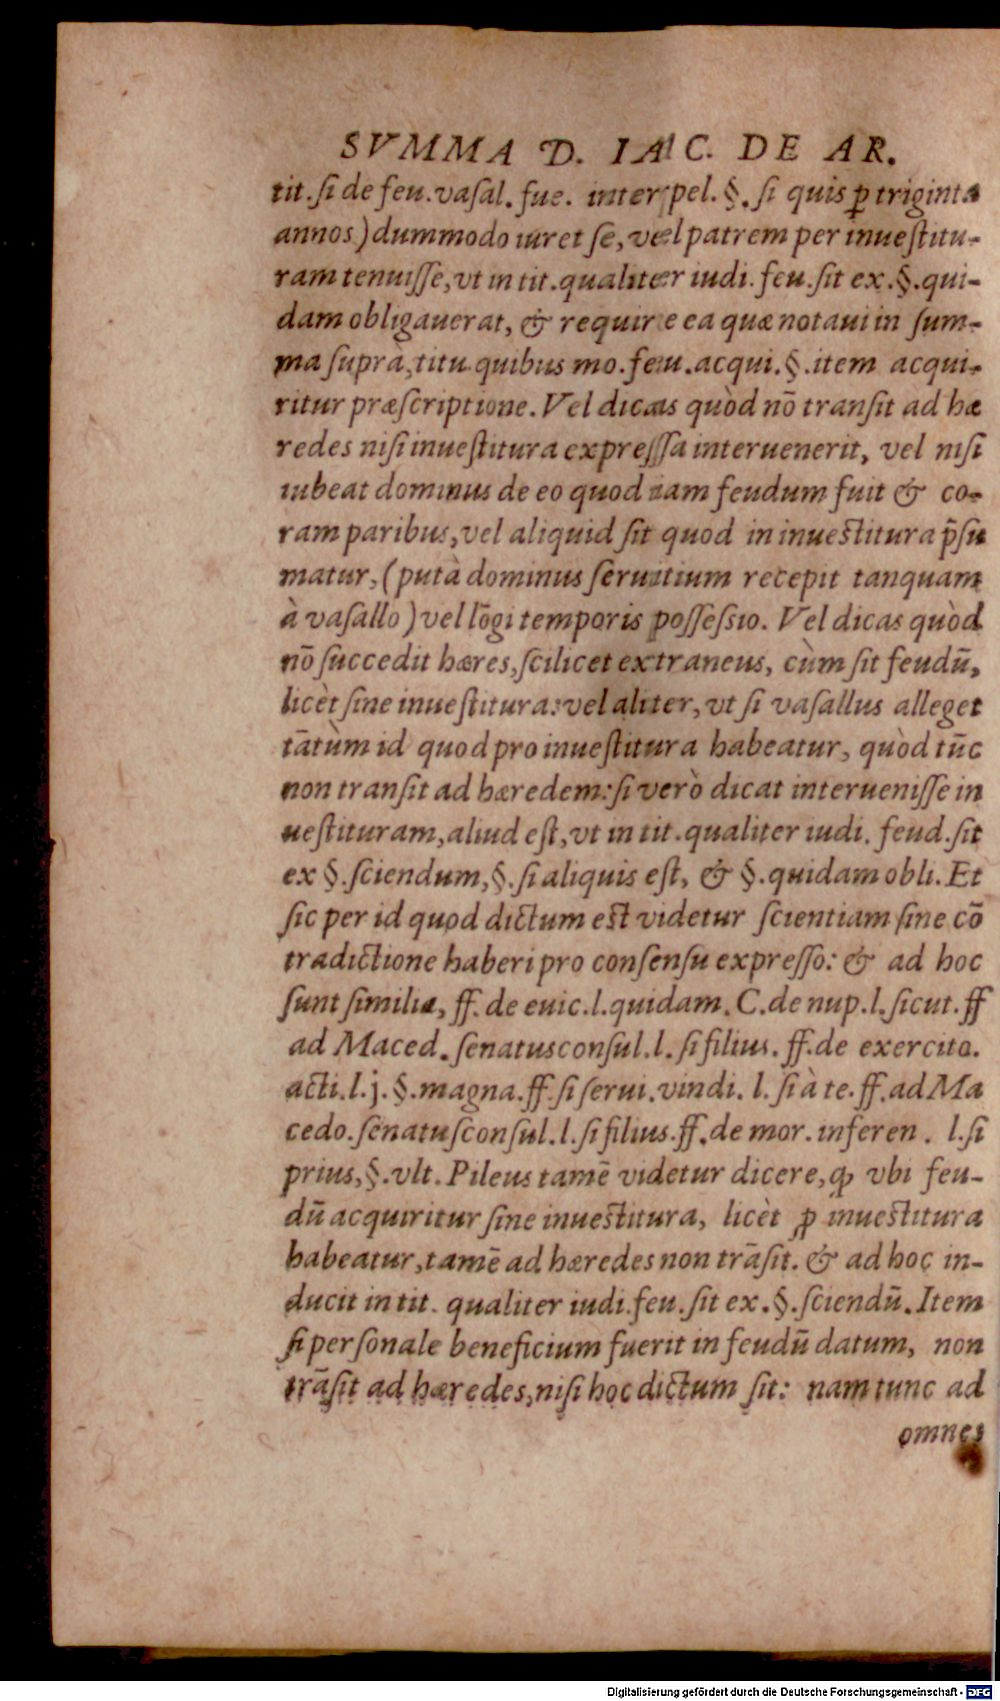 SVMMA D. IAC. DE AR.
tit. ſi de feu. vaſal. fue. inter pel. §. ſi quis ꝑ triginta
annos) dummodo iuret ſe, vel patrem per inueſtitu-
ram tenuiſſe, vt in tit. qualiter iudi. feu. ſit ex. §. qui-
dam obligauerat, & require ea quæ notaui in ſum-
ma ſuprà, titu. quibus mo. feu. acqui. §. item acqui-
ritur præſcriptione. Vel dicas quòd nō tranſit ad hæ
redes niſi inueſtitura expreſſa interuenerit, vel niſi
iubeat dominus de eo quod iam feudum fuit & co-
ram paribus, vel aliquid ſit quod in inueſtitura p̄ſu
matur, (putà dominus ſeruitium recepit tanquam
à vaſallo) vel lōgi temporis poſſeſsio. Vel dicas quòd
nō ſuccedit hæres, ſcilicet extraneus, cùm ſit feudū,
licèt ſine inueſtitura: vel aliter, vt ſi vaſallus alleget
tātùm id quod pro inueſtitura habeatur, quòd tūc
non tranſit ad hæredem: ſi verò dicat interueniſſe in
ueſtituram, aliud eſt, vt in tit. qualiter iudi. feud. ſit
ex §. ſciendum, §. ſi aliquis eſt, & §. quidam obli. Et
ſic per id quod dictum eſt videtur ſcientiam ſine cō
tradictione haberi pro conſenſu expreſſo: & ad hoc
ſunt ſimilia, ff. de euic. l. quidam. C. de nup. l. ſicut. ff
ad Maced. ſenatusconſul. l. ſi filius. ff. de exercito.
acti. l. j. §. magna. ff. ſi ſerui. vindi. l. ſi à te. ff. ad Ma
cedo. ſenatuſconſul. l. ſi filius. ff. de mor. inferen. l. ſi
prius, §. vlt. Pileus tamē videtur dicere, ꝙ vbi feu-
dū acquiritur ſine inueſtitura, licèt ꝓ inueſtitura
habeatur, tamē ad hæredes non trāſit. & ad hoc in-
ducit in tit. qualiter iudi. feu. ſit ex. §. ſciendū. Item
ſi perſonale beneficium fuerit in feudū datum, non
trāſit ad hæredes, niſi hoc dictum ſit: nam tunc ad
omnes
Digitalisierung gefördert durch die Deutsche Forschungsgemeinschaft - DFG